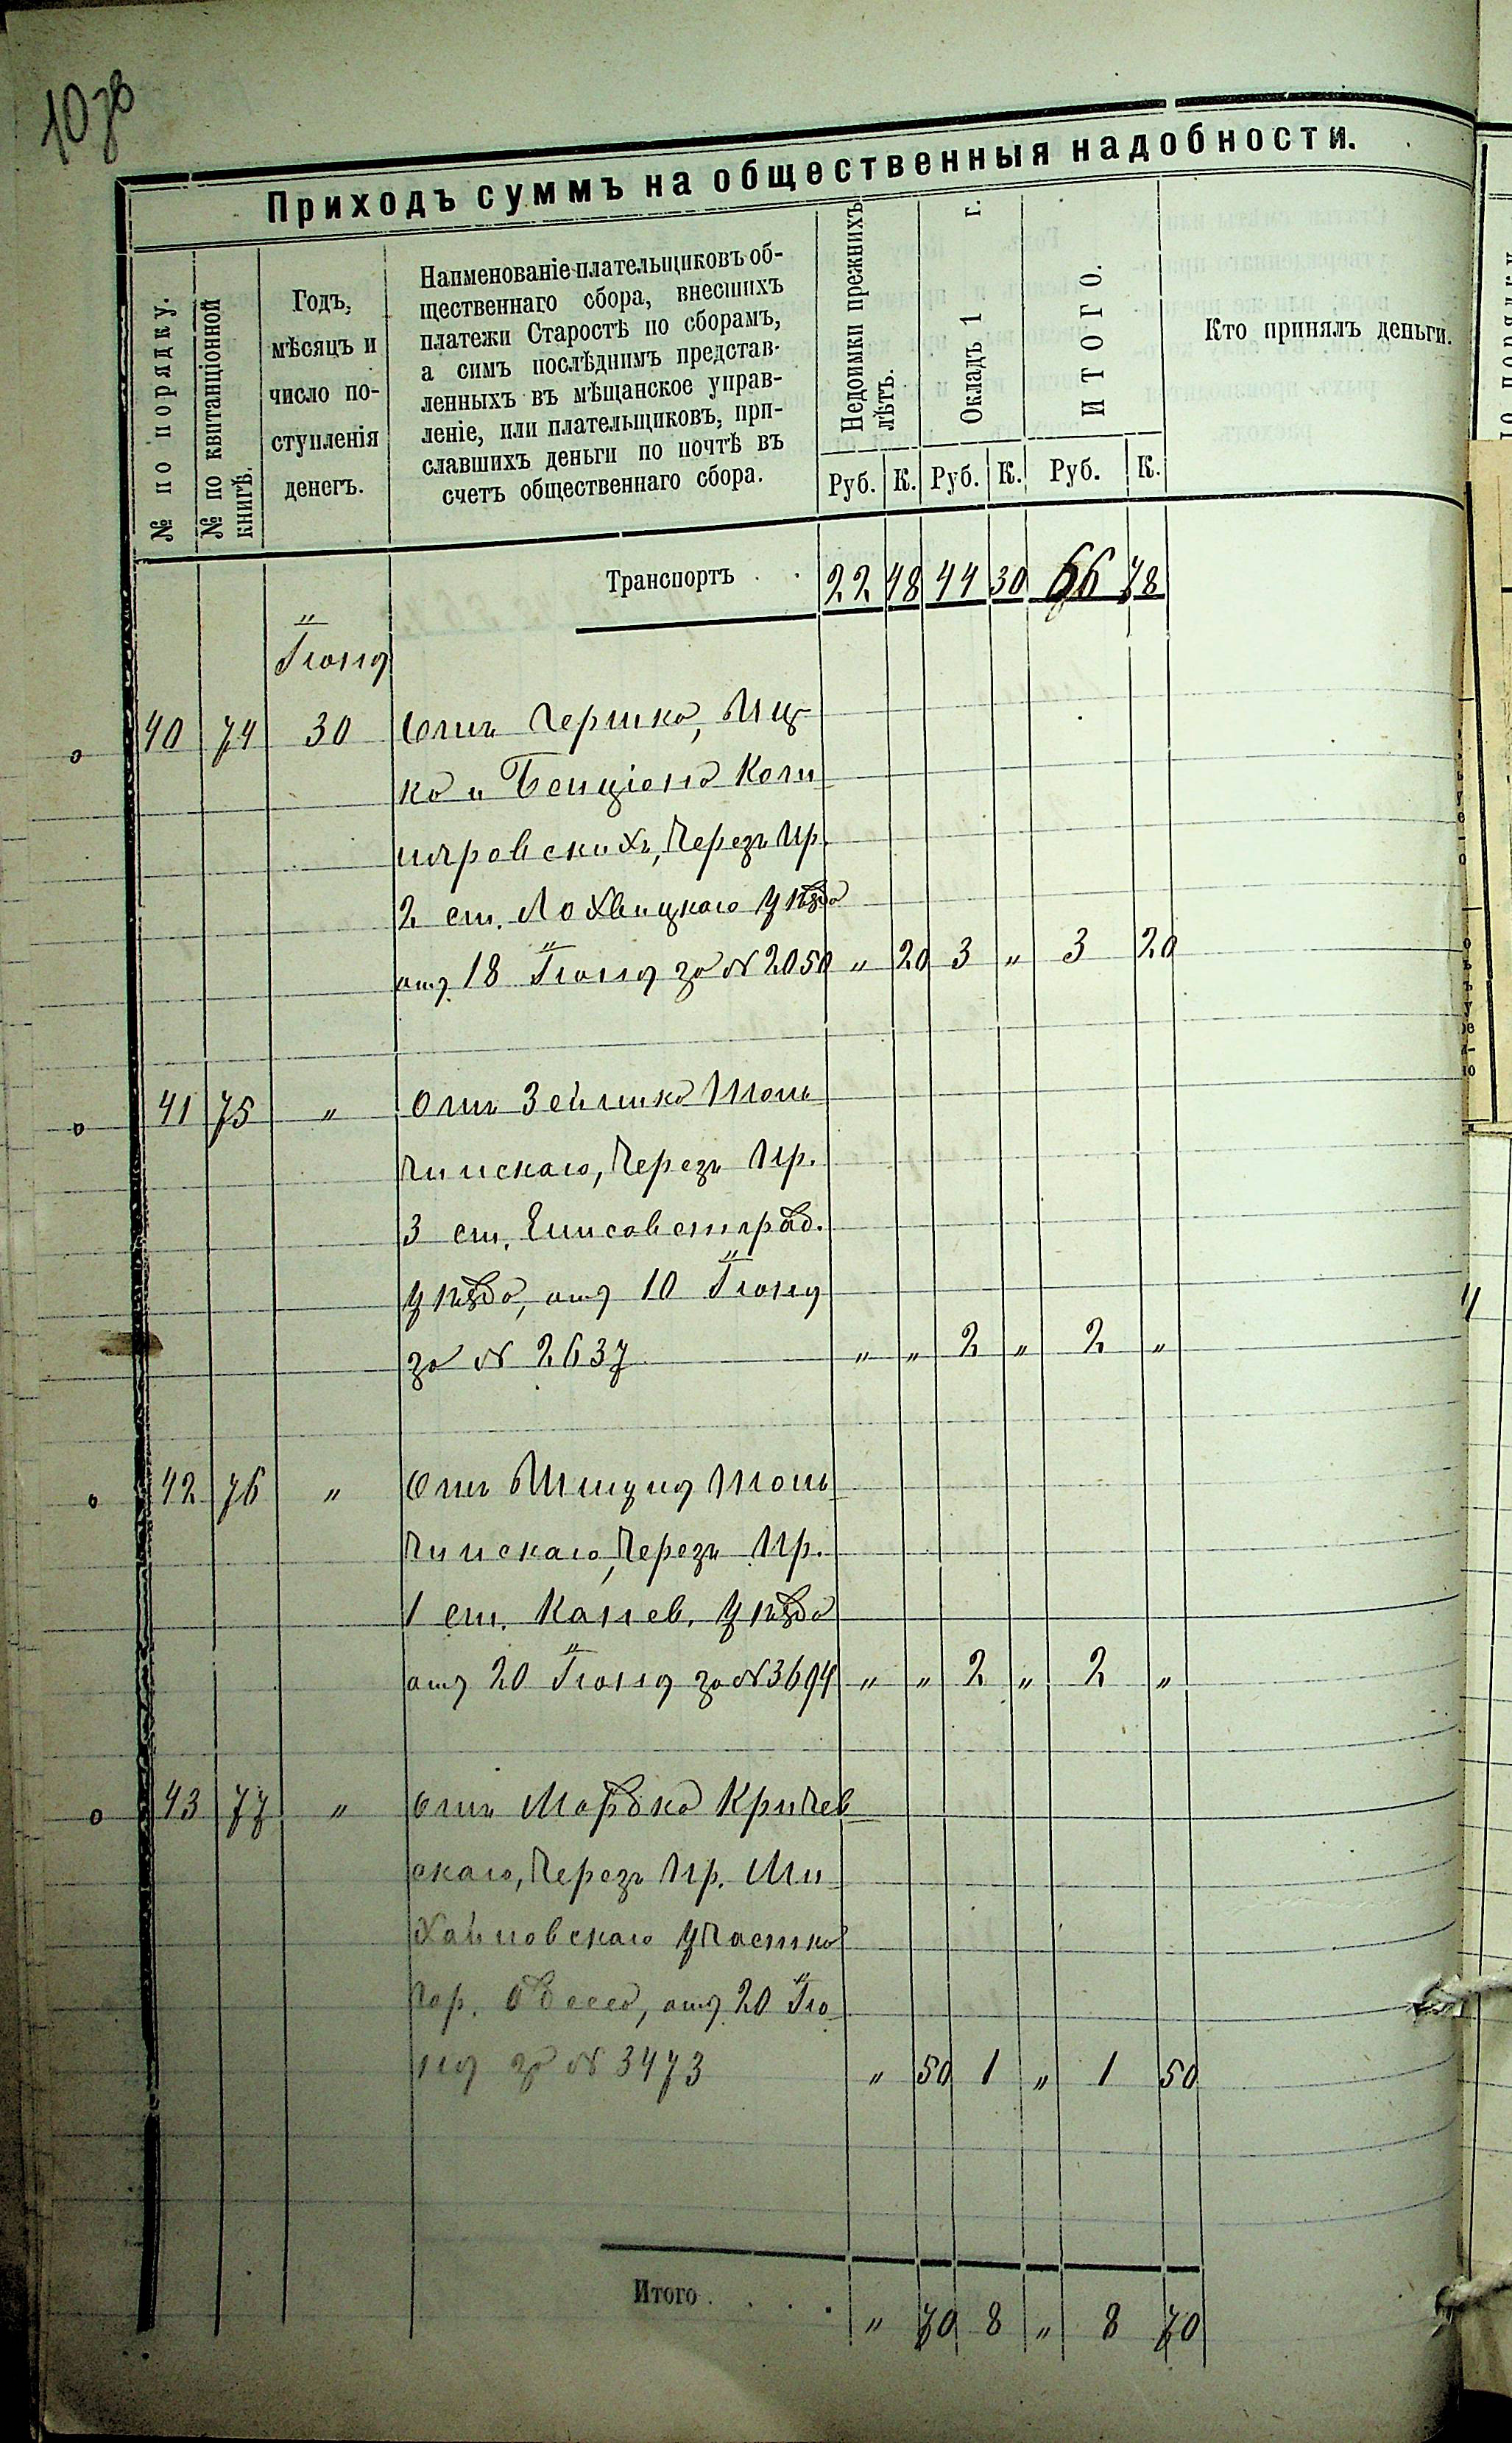 10 зв
Приходъ суммъ на общественныя надобности.
№ по порядку.
№ по квитанціонной книгѣ.
Годъ, мѣсяцъ и число поступленія денегъ.
Наименованіе плательщиковъ об-
щественнаго сбора, внесшихъ
платежи Старостѣ по сборамъ,
а симъ послѣднимъ представ-
ленныхъ въ мѣщанское управ-
леніе, или плательщиковъ, при-
славшихъ деньги по почтѣ въ
счетъ общественнаго сбора.
Недоимки прежнихъ лѣтъ.
Окладъ 1 г.
ИТОГО.
Кто принялъ деньги.
Руб. К. Руб. К. Руб. К.
Транспортъ . . 22 48 44 30 66 78
Іюня
40 74 30 Отъ Гершка, Иц-
ка и Бенціона
2 ст. Лохвицкаго уѣзда
отъ 18 Іюня за № 2050 " 20 3 " 3 20
41 75 " Отъ Зейлика
чинскаго, Черезъ Пр.
3 ст. Елисаветград.
уѣзда, отъ 10 Іюня
за № 2637 " " 2 " 2 "
42 76 " Отъ
чинскаго, Черезъ Пр.
1 ст. Канев. уѣзда
отъ 20 Іюня за № 3694 " " 2 " 2 "
43 77 " Отъ Мордка Кричев
скаго, Черезъ Пр. Ми
хайловскаго участка
гор. Одесса, отъ 20 Ію
ня за № 3473 " 50 1 " 1 50
Итого . . . . " 70 8 " 8 70